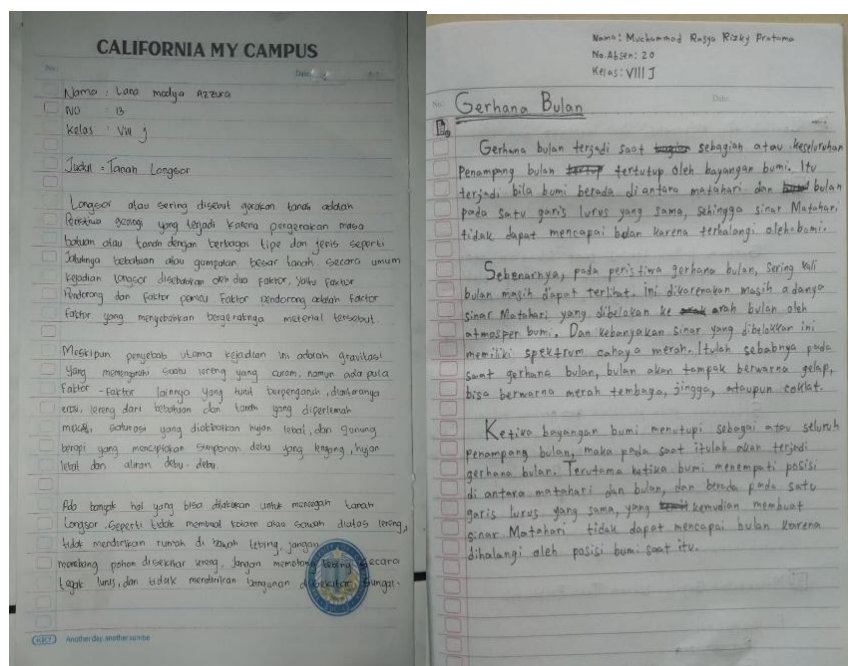 CALIFORNIA MY CAMPUS
No.
Date
Nama : Lana madya Azzura
NO : 13
Kelas : VIII J
Judul = Tanah Longsor
Longsor atau sering disebut gerakan tanah adalah
Peristiwa geologi yang terjadi karena pergerakan masa
batuan atau tanah dengan berbagai tipe dan jenis seperti
Jatuhnya bebatuan atau gumpalan besar tanah. secara umum
kejadian longsor disebabkan oleh dua faktor, yaitu Faktor
Pendorong dan Faktor pemicu Faktor pendorong adalah Factor
faktor yang menyebabkan bergeraknya material tersebut.
Meskipun penyebab utama kejadian ini adalah gravitasi
yang memengaruhi suatu lereng yang curam, namun ada pula
Faktor - Faktor lainnya yang turut berpengaruh,
erosi, lereng dari bebatuan dan tanah yang diperlemah
saturasi yang diakibatkan hujan lebat, dan gunung
berapi yang menciptakan simpanan debu yang lengang, hujan
lebat dan aliran debu-debu.
Ada banyak hal yang bisa dilakukan untuk mencegah tanah
Longsor. Seperti tidak membuat kolam atau sawah diatas lereng,
tidak mendirikan rumah di bawah tebing, jangan
menebang pohon disekitar lereng, Jangan memotong tebing secara
tegak lurus, dan tidak mendirikan bangunan disekitar Sungai.
KKY Another day, another sunrise
Nama: Muchammad Rasya Rizky Pratama
No.Absen: 20
Kelas: VIII J
No.
Date
Gerhana Bulan
Gerhana bulan terjadi saat sebagian atau keseluruhan
Penampang bulan tertutup oleh bayangan bumi. Itu
terjadi bila bumi berada di antara matahari dan bulan
pada satu garis lurus yang sama, sehingga sinar Matahari
tidak dapat mencapai bulan karena terhalangi oleh bumi.
Sebenarnya, pada peristiwa gerhana bulan, sering kali
bulan masih dapat terlihat. ini dikarenakan masih adanya
sinar Matahari yang dibelokan ke arah bulan oleh
atmosper bumi. Dan kebanyakan sinar yang dibelokkan ini
memiliki spektrum cahaya merah. Itulah sebabnya pada
saat gerhana bulan, bulan akan tampak berwarna gelap,
bisa berwarna merah tembaga, jingga, ataupun coklat.
Ketika bayangan bumi menutupi sebagai atau seluruh
penampang bulan, maka pada saat itulah akan terjadi
gerhana bulan. Terutama ketika bumi menempati posisi
di antara matahari dan bulan, dan berada pada satu
garis lurus yang sama, yang kemudian membuat
sinar Matahari tidak dapat mencapai bulan karena
dihalangi oleh posisi bumi saat itu.